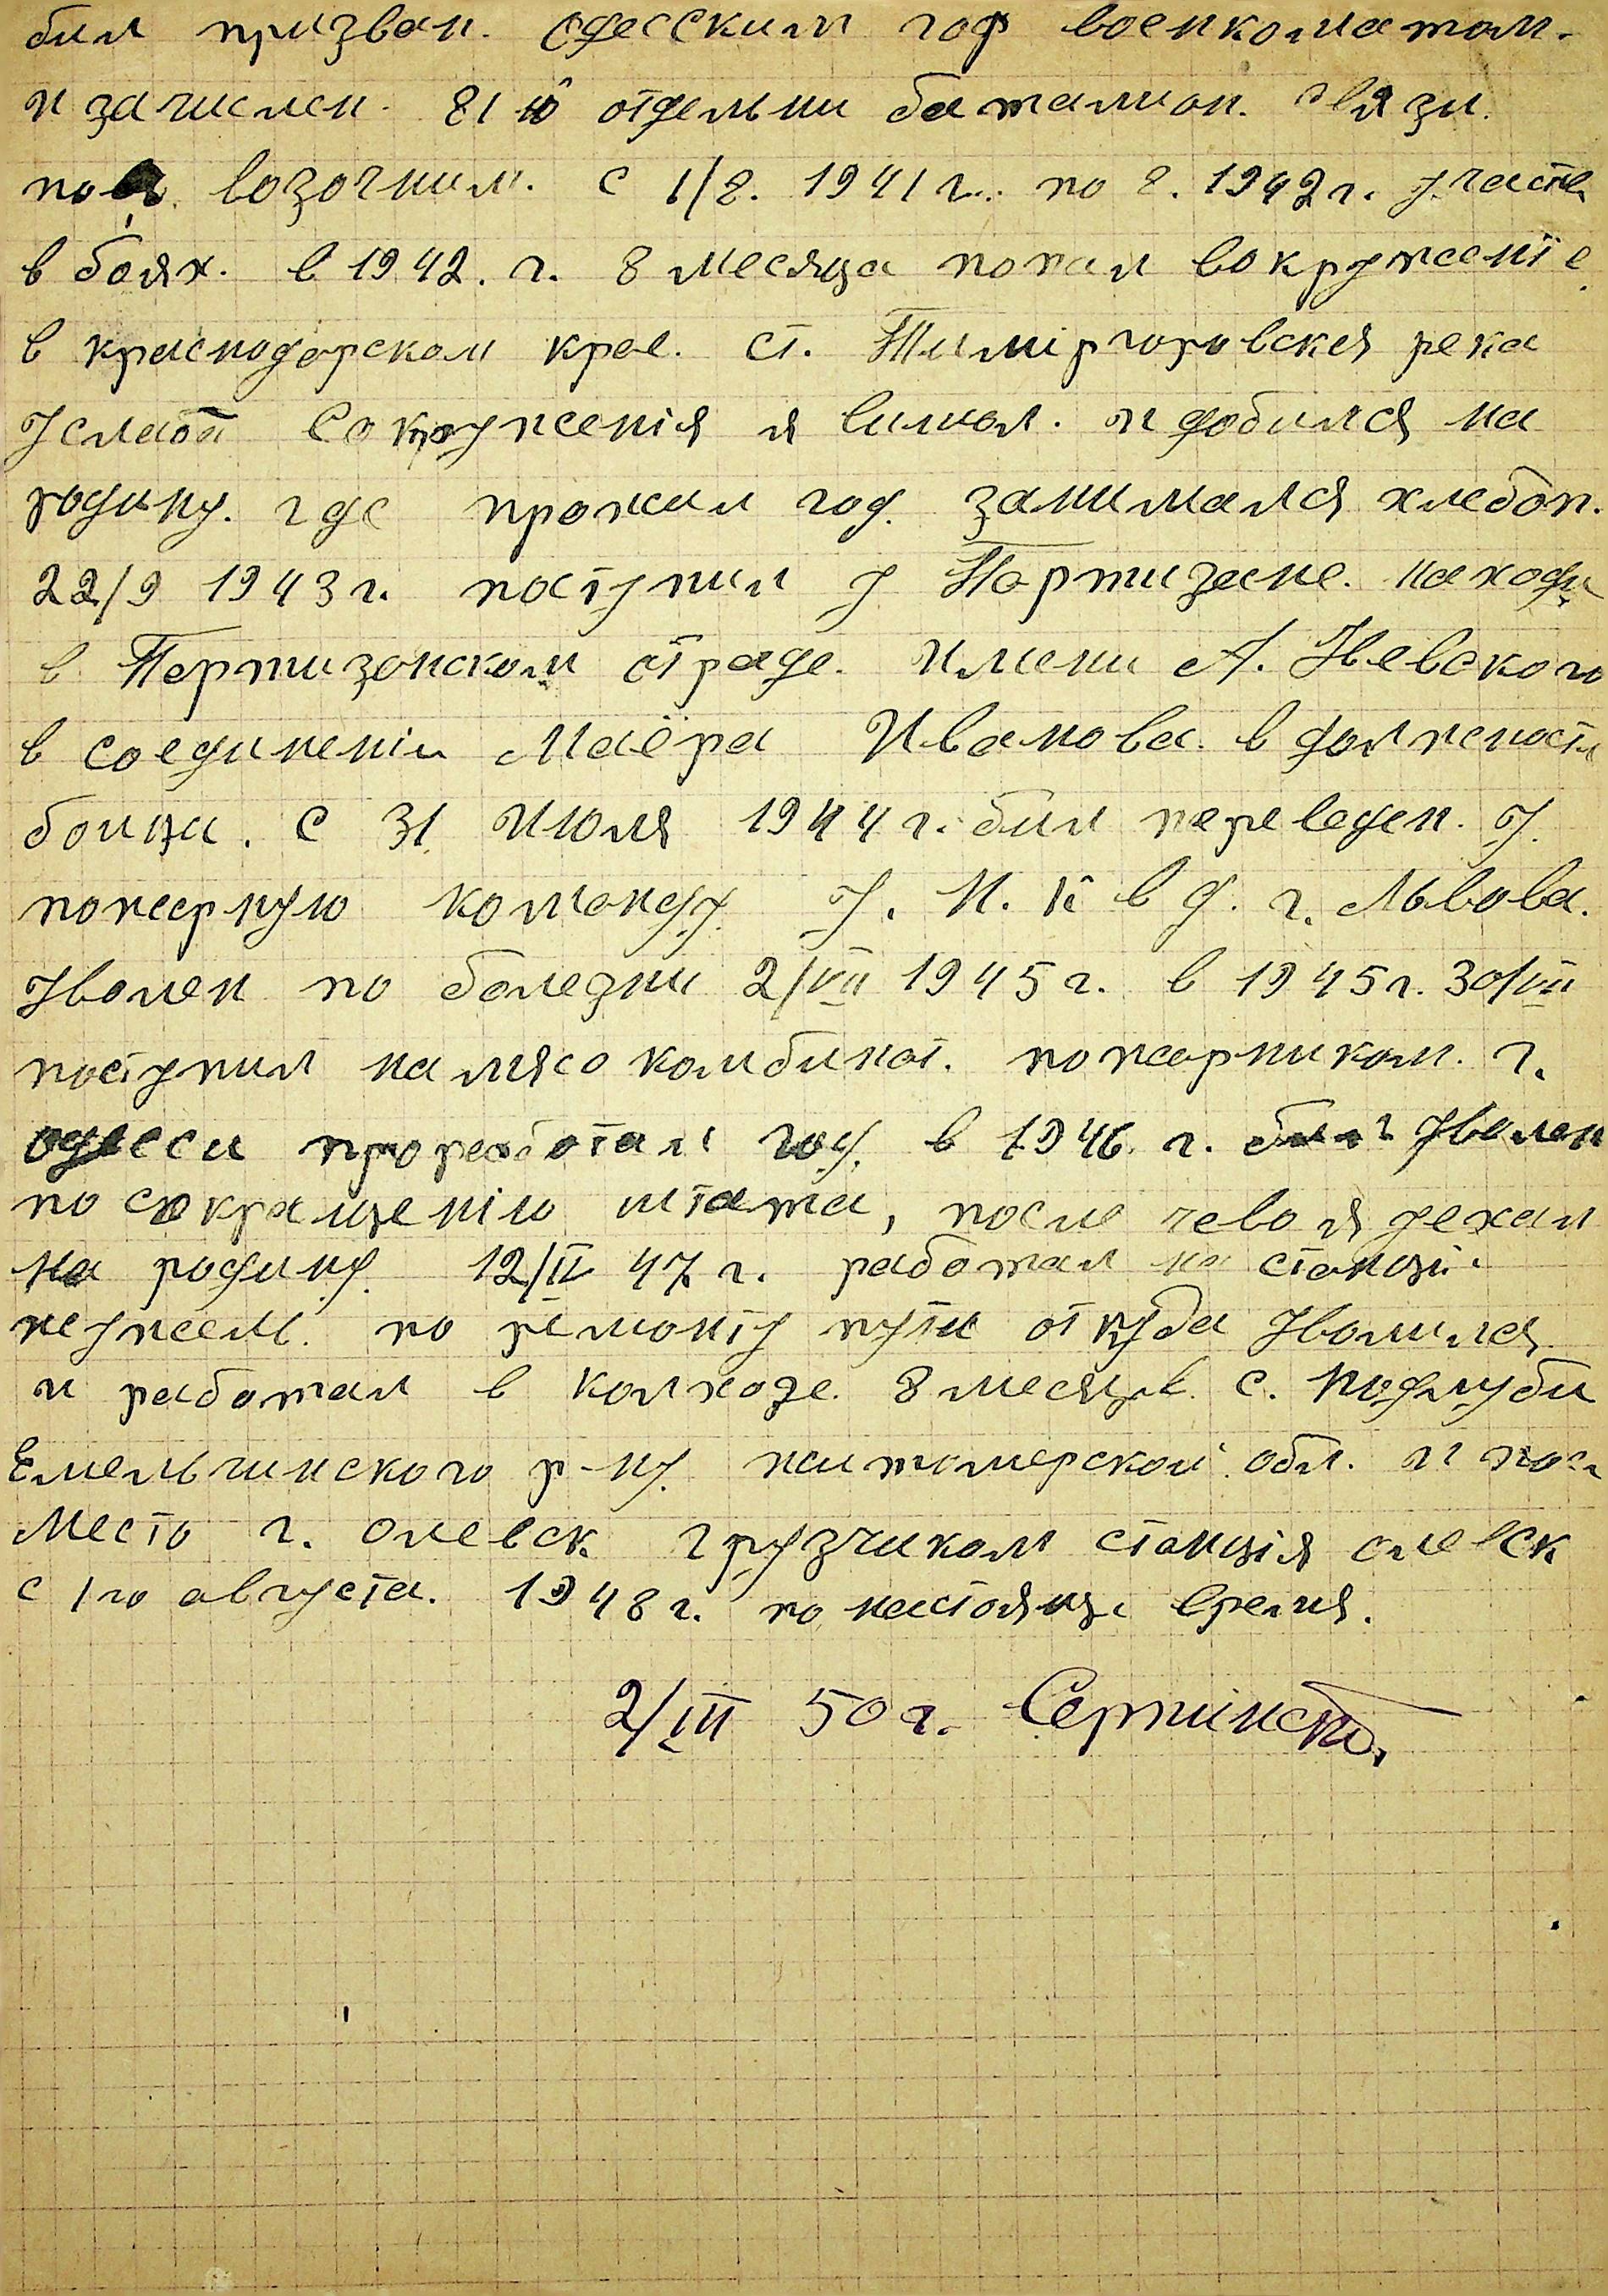 бил призван. одесским гор военкоматом.
и зачислен. 81 й отдельни баталион. связи.
возочним. с 1/8. 1941 г. по 8. 1942 г. участв
в боях. в 1942. г. 8 месяца попал вокружениїе
в краснодарском крае. ст. Тиміргоровская река
Услаба сокружения я вишол. и добился на
родину. где прожил год. занимался хлебоп.
22/9 1943 г. поступил у Партизане. находи
в Партизанском отраде. имени А. Невского
в соединеніи Маёра Иванова. в должености
бойца. с 31 Июля 1944 г. бил переведен. У.
пожарную команду У. Н. К в д. г. Львова.
Уволен по болезни 2/VII 1945 г. в 1945 г. 30/VII
поступил на мясо комбинат. пожарником. г.
одесси проработал год. в 1946. г. бил уволен
по сокращенію штата, после чево я уехал
на родину. 12/II 47 г. работал на станціи
по ремонту пути откуда уволился
и работал в колхозе. 8 месяцв. с. Подлуби
Емельчинского р-ну. житомерской обл. и
Место г. олевск. грузчиком станція олевск
с 1го августа. 1948 г. по настоящи время.
2/III 50 г.